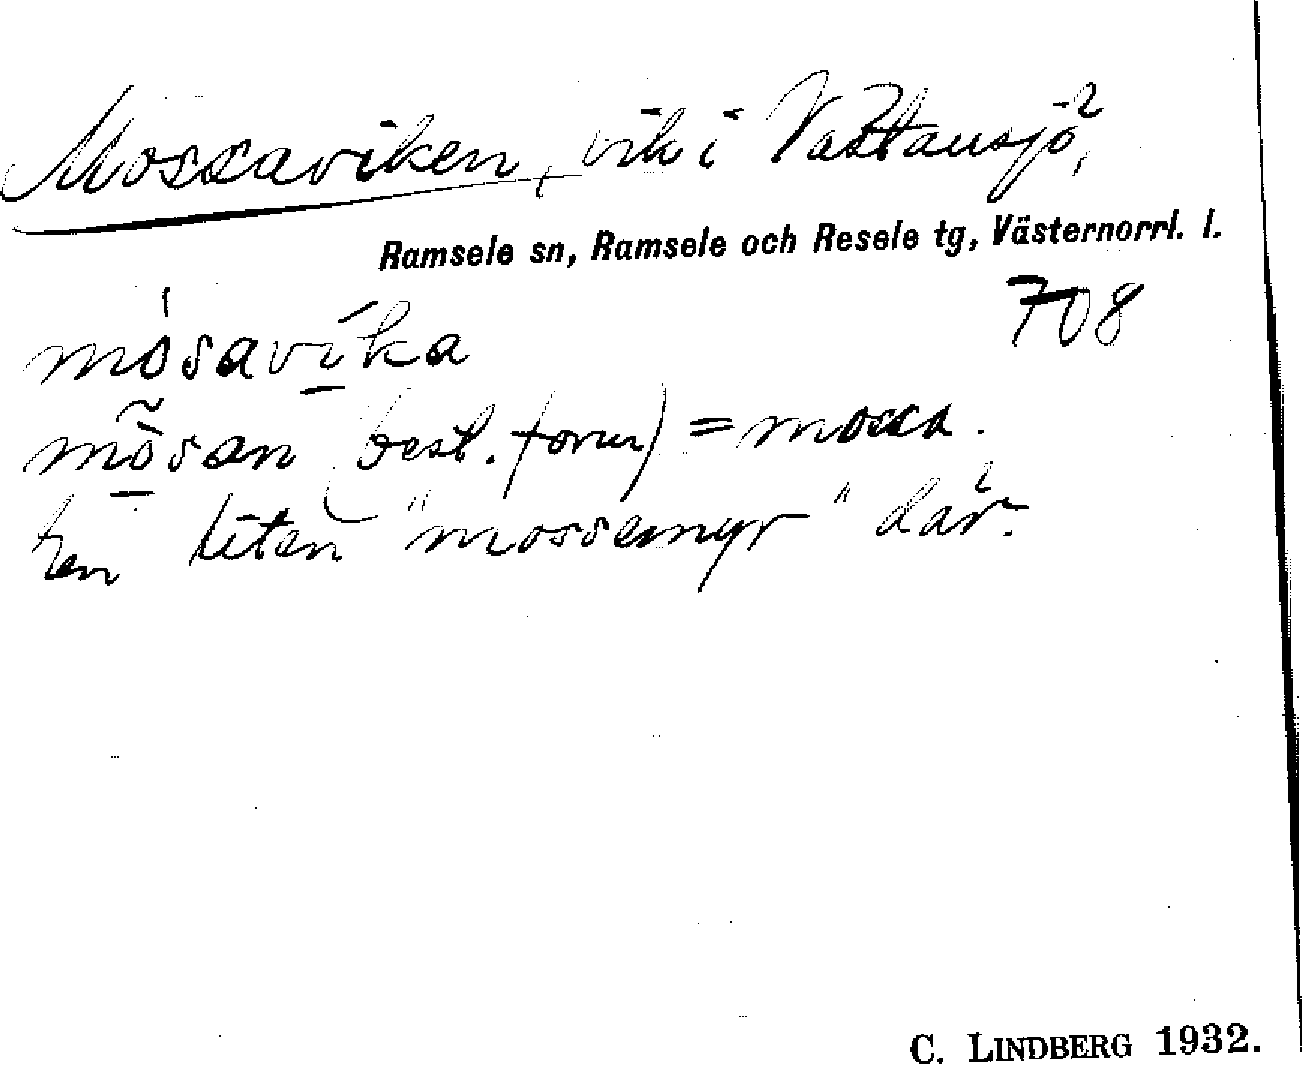 Mossaviken, vik i Västansjö,
Ramsele sn, Ramsele och Resele tg, Västernorrl. l.
708
mòsavíka
mõsan (best. form) = mossa.
en liten "mossemyr" där.
C. LINDBERG 1932.